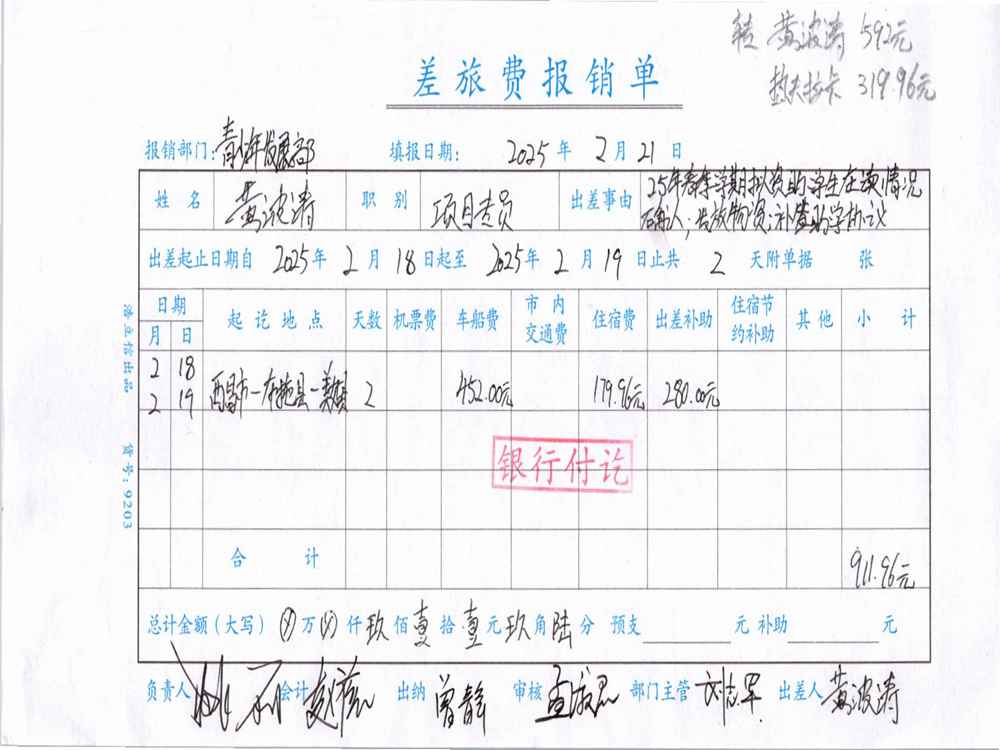 转 黄波涛 592元
319.96元
差旅费报销单
报销部门：青少年发展部 填报日期： 2025年 2月21日
姓名 黄波涛 职别 项目专员 出差事由 25年春季学期拟资助学生在读情况
确认；发放物资；补签助学协议
出差起止日期自 2025年 2月 18日起至 2025年 2月 19日止共 2 天附单据 张
日期 起讫地点 天数 机票费 车船费 市内交通费 住宿费 出差补助 住宿节约补助 其他 小计
月 日
2 18
2 19 西昌市— 2 452.00元 179.96元 280.00元
银行付讫
合计 911.96元
总计金额（大写） 万 仟玖佰壹拾壹元玖角陆分 预支 元 补助 元
负责人 会计 出纳 曾静 审核 部门主管 刘志军 出差人 黄波涛
浩立信出品 货号：9203